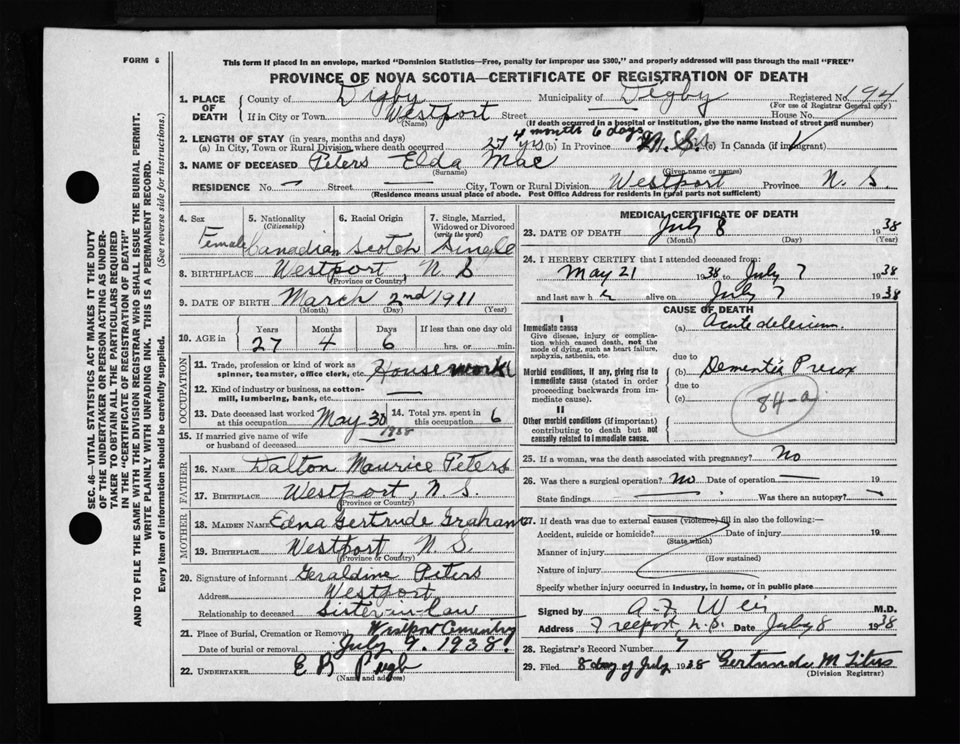 FORM 6
This form if placed in an envelope, marked "Dominion Statistics—Free, penalty for improper use $300," and properly addressed will pass through the mail "FREE"
PROVINCE OF NOVA SCOTIA—CERTIFICATE OF REGISTRATION OF DEATH
1. PLACE OF DEATH County of Digby Municipality of Digby Registered No. 194
(For use of Registrar General only)
If in City or Town Westport Street — House No.
(Name) (If death occurred in a hospital or institution, give the name instead of street and number)
2. LENGTH OF STAY (in years, months and days) 4 months 6 days
(a) In City, Town or Rural Division where death occurred 27 yrs (b) In Province N. S. (c) In Canada (if immigrant)
3. NAME OF DECEASED Peters Elda Mae
(Surname) (Given name or names)
RESIDENCE No. — Street — City, Town or Rural Division Westport Province N. S.
(Residence means usual place of abode. Post Office Address for residents in rural parts not sufficient)
4. Sex Female
5. Nationality (Citizenship) Canadian
6. Racial Origin Scotch
7. Single, Married, Widowed or Divorced (write the word) Single
8. BIRTHPLACE Westport, N S
(Province or Country)
9. DATE OF BIRTH March 2nd 1911
(Month) (Day) (Year)
10. AGE Years 27 Months 4 Days 6 If less than one day old hrs. or min.
OCCUPATION
11. Trade, profession or kind of work as spinner, teamster, office clerk, etc. Housework
12. Kind of industry or business, as cotton-mill, lumbering, bank, etc. —
13. Date deceased last worked at this occupation May 30 1938
14. Total yrs. spent in this occupation 6
15. If married give name of wife or husband of deceased —
FATHER
16. NAME Dalton Maurice Peters
17. BIRTHPLACE Westport, N. S.
(Province or Country)
MOTHER
18. MAIDEN NAME Edna Gertrude Graham
19. BIRTHPLACE Westport, N. S.
(Province or Country)
20. Signature of informant Geraldine Peters
Address Westport
Relationship to deceased Sister-in-law
21. Place of Burial, Cremation or Removal Westport Cemetery
Date of burial or removal July 9, 1938
22. UNDERTAKER E B Pugh
(Name and address)
MEDICAL CERTIFICATE OF DEATH
23. DATE OF DEATH July 8 1938
(Month) (Day) (Year)
24. I HEREBY CERTIFY that I attended deceased from:
May 21 1938 to July 7 1938
and last saw h er alive on July 7 1938
CAUSE OF DEATH
I
Immediate cause
Give disease, injury or complication which caused death, not the mode of dying, such as heart failure, asphyxia, asthenia, etc.
(a) Acute delirium.
due to
Morbid conditions, if any, giving rise to immediate cause (stated in order proceeding backwards from immediate cause).
(b) Dementia Precox
due to
(c)
84-a
II
Other morbid conditions (if important) contributing to death but not causally related to immediate cause.
25. If a woman, was the death associated with pregnancy? No
26. Was there a surgical operation? No Date of operation — 19
State findings — Was there an autopsy? —
27. If death was due to external causes (violence) fill in also the following:—
Accident, suicide or homicide? Date of injury 19
(State which)
Manner of injury
(How sustained)
Nature of injury
Specify whether injury occurred in industry, in home, or in public place
Signed by A. F. Weir M.D.
Address Freeport N.S. Date July 8 1938
28. Registrar's Record Number 7
29. Filed 8 day of July 1938 Gertrude M Titus
(Division Registrar)
SEC. 46—VITAL STATISTICS ACT MAKES IT THE DUTY
OF THE UNDERTAKER OR PERSON ACTING AS UNDERTAKER TO OBTAIN ALL THE PARTICULARS REQUIRED
IN THE "CERTIFICATE OF REGISTRATION OF DEATH"
AND TO FILE THE SAME WITH THE DIVISION REGISTRAR WHO SHALL ISSUE THE BURIAL PERMIT.
WRITE PLAINLY WITH UNFADING INK. THIS IS A PERMANENT RECORD.
Every item of information should be carefully supplied. (See reverse side for instructions.)